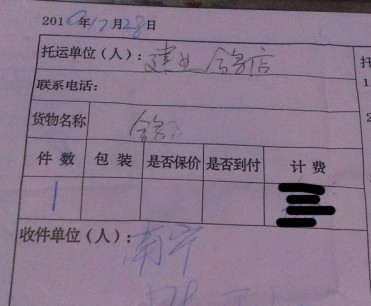 2010年12月28日
托运单位（人）：建业 店
联系电话：
货物名称
件 数 包 装 是否保价 是否到付 计 费
1
收件单位（人）：南宁